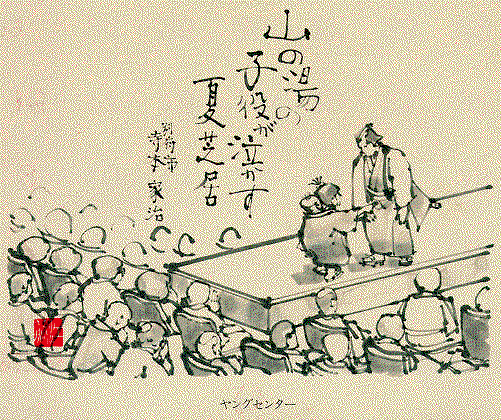 山の湯の
子役が泣かす
夏芝居
別府市
寺本家治
ヤングセンター